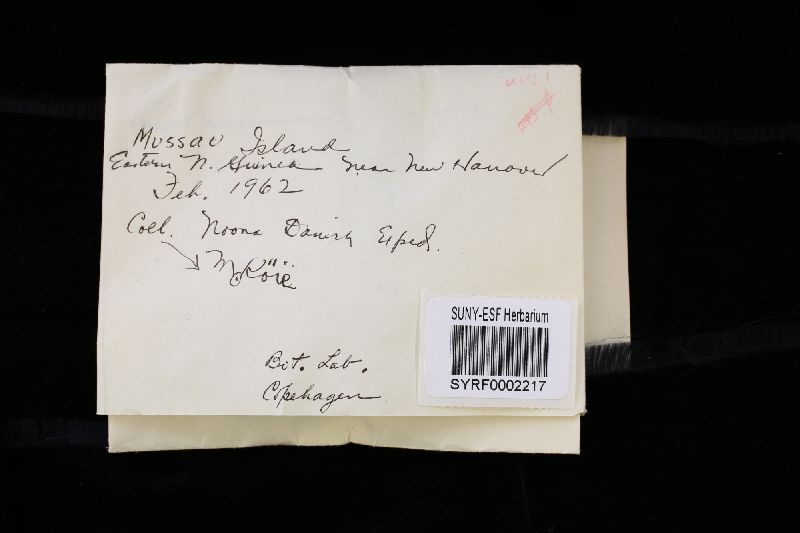 Mussau Island
Eastern N. Guinea near New Hanover
Feb. 1962
Coll. Noona Danish Exped.
M. Köie
Bot. Lab.
Copehagen
SUNY-ESF Herbarium
SYRF0002217